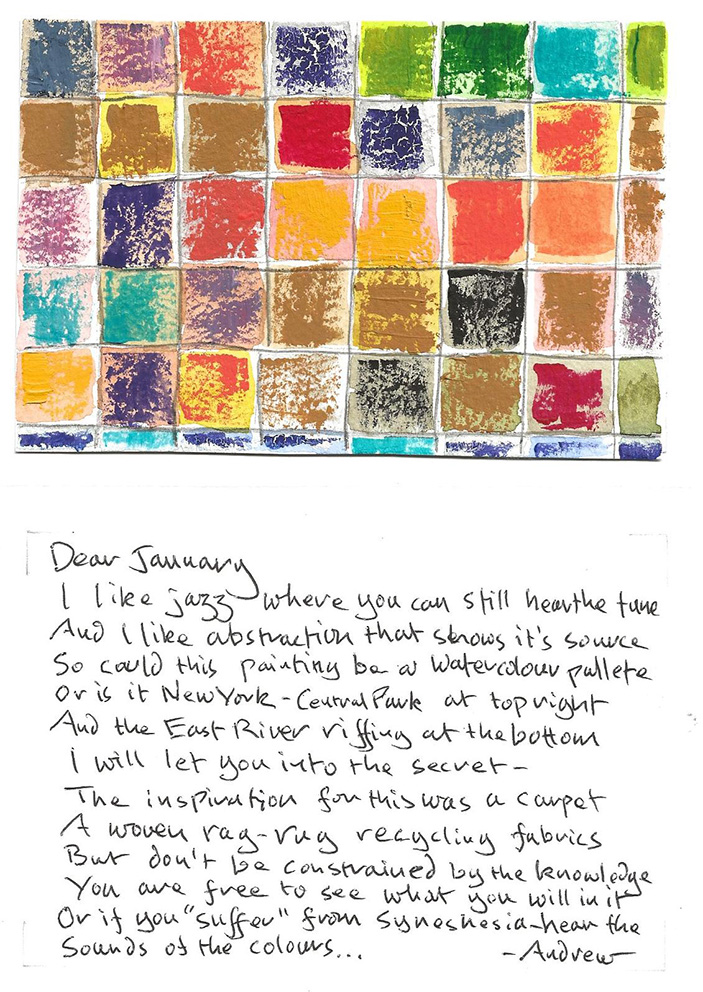 Dear January
I like jazz where you can still hear the tune
And I like abstraction that shows it's source
So could this painting be a watercolour pallete
Or is it New York - Central Park at top right
And the East River riffing at the bottom
I will let you into the secret -
The inspiration for this was a carpet
A woven rag-rug recycling fabrics
But don't be constrained by the knowledge
You are free to see what you will in it
Or if you "suffer" from Synesnesia - hear the
Sounds of the colours...   - Andrew